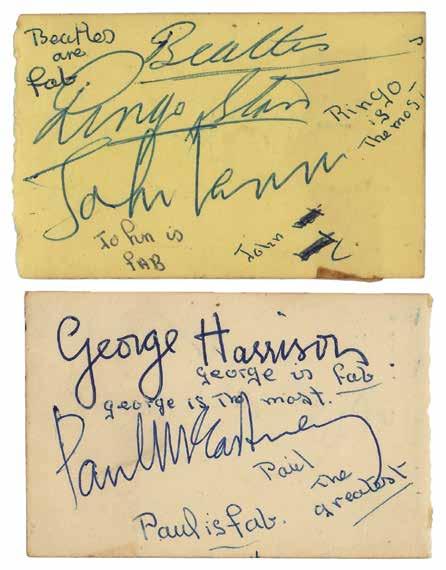 Beatles
are
fab.
Beatles
Ringo Starr
Ringo
is
The most
John Lennon
John is
FAB
John
George Harrison
george is fab.
george is The most.
Paul McCartney
Paul
The
greatest
Paul is fab.